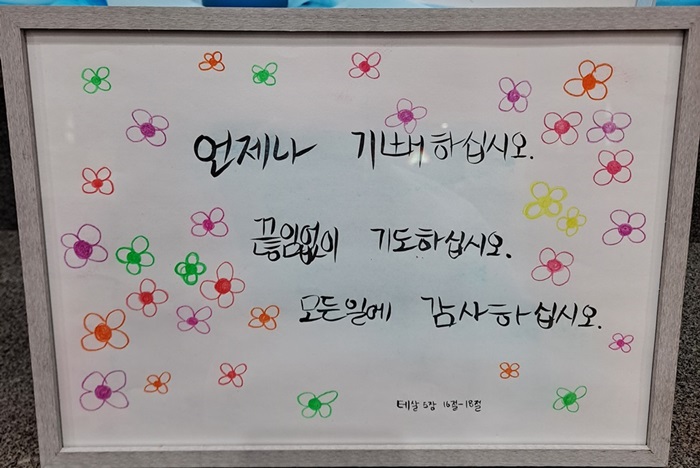 언제나 기뻐하십시오.
끊임없이 기도하십시오.
모든일에 감사하십시오.
테살 5장 16절-18절